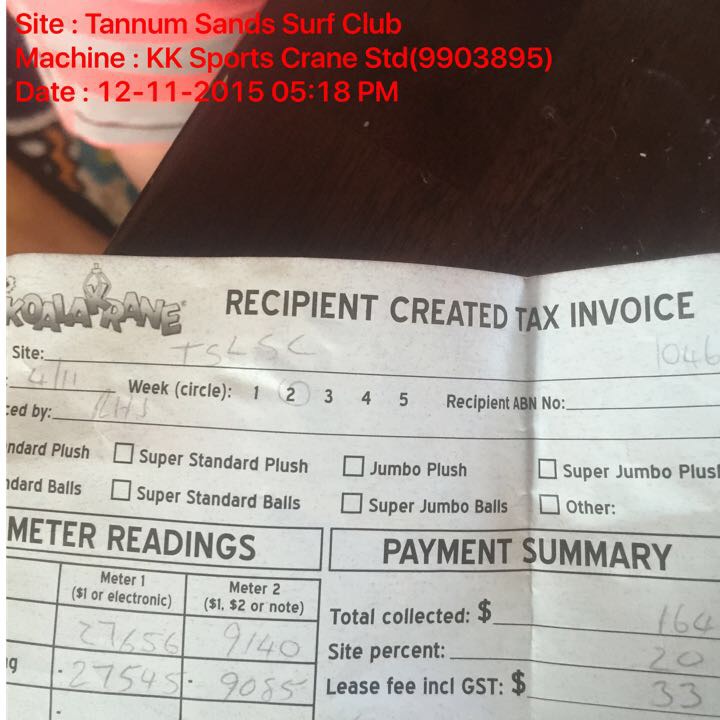 Site : Tannum Sands Surf Club
Machine : KK Sports Crane Std(9903895)
Date : 12-11-2015 05:18 PM
KOALA KRANE
RECIPIENT CREATED TAX INVOICE
Site: TSLSC 1046
4/11 Week (circle): 1 2 3 4 5 Recipient ABN No:
ced by:
ndard Plush Super Standard Plush Jumbo Plush Super Jumbo Plush
ndard Balls Super Standard Balls Super Jumbo Balls Other:
METER READINGS PAYMENT SUMMARY
Meter 1 Meter 2
($1 or electronic) ($1, $2 or note)
Total collected: $ 164
27656 9140
Site percent: 20
g - 27545 - 9085
Lease fee incl GST: $ 33
-